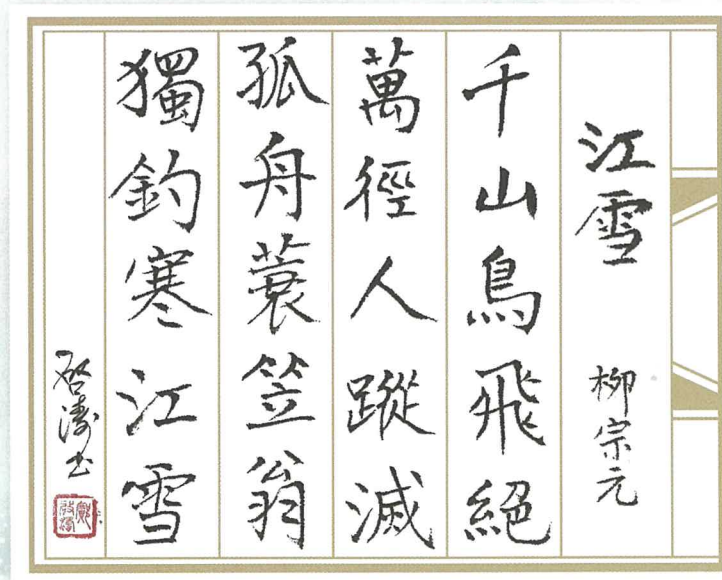 江雪 柳宗元
千山鳥飛絕
萬徑人蹤滅
孤舟蓑笠翁
獨釣寒江雪
啓濤书